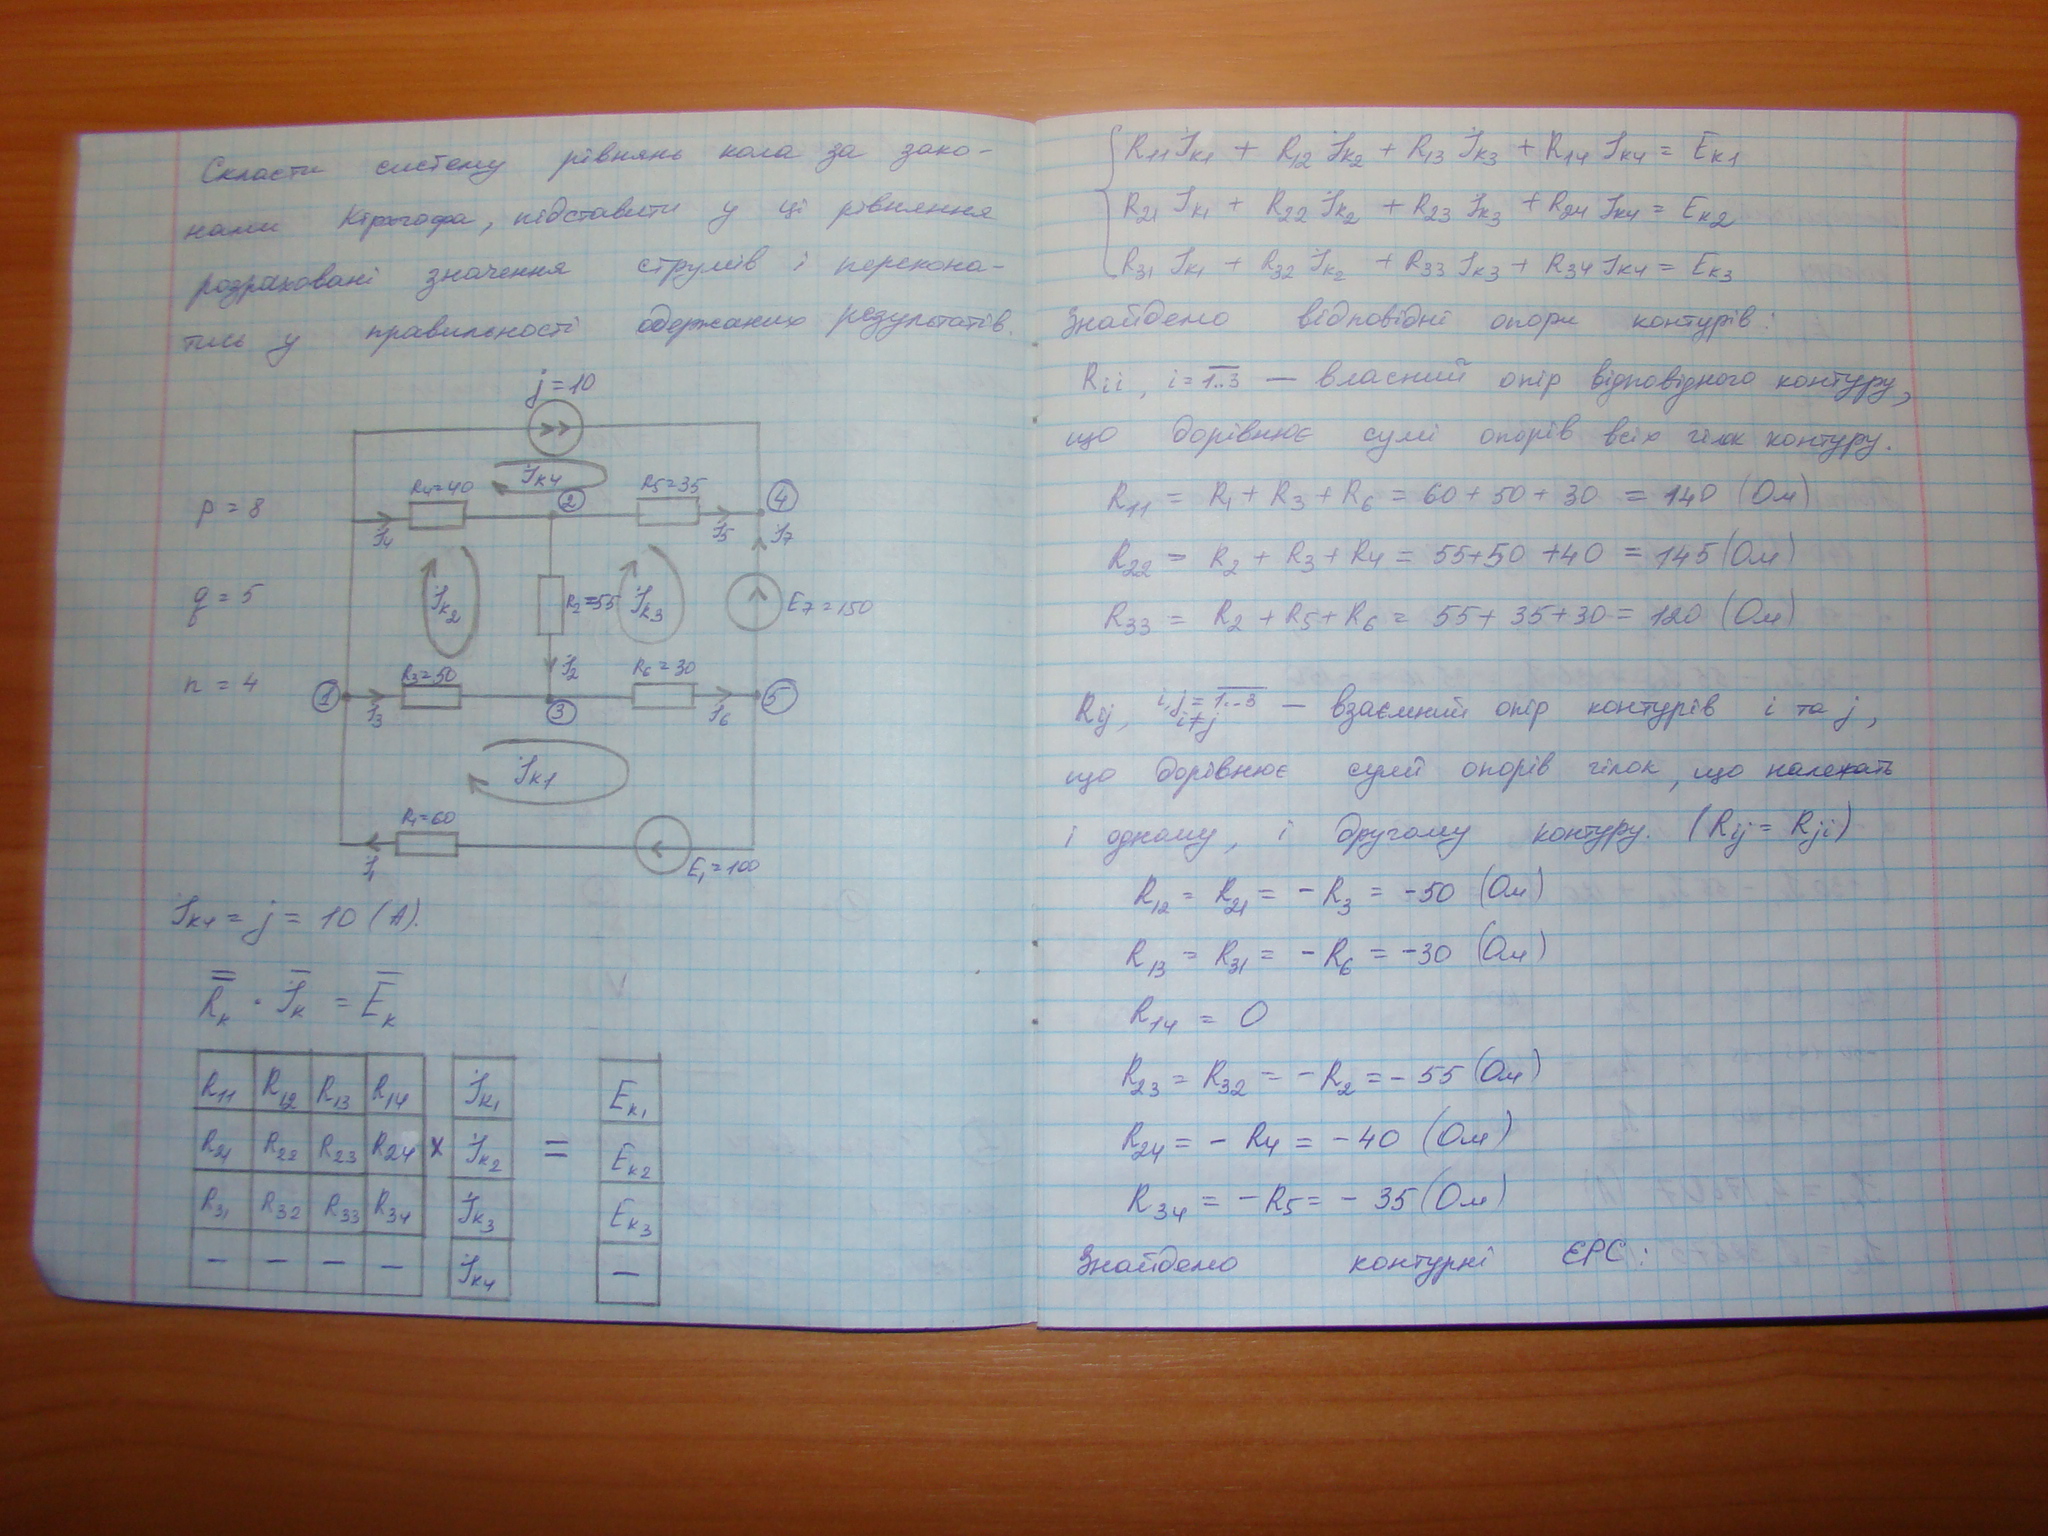 Скласти систему рівнянь кола за зако-
нами Кірхгофа, підставити у ці рівняння
розраховані значення струмів і перекона-
тись у правильності одержаних результатів.
j = 10
I_K4
R4=40
R5=35
2
4
p = 8
I4
I5
I7
q = 5
I_K2
R2=55
I_K3
E7=150
I2
n = 4
R3=50
R6=30
1
I3
3
I6
5
I_K1
R1=60
I1
E1=100
I_K4 = j = 10 (А).
R_K · I_K = E_K
R11 R12 R13 R14 I_K1 E_K1
R21 R22 R23 R24 × I_K2 = E_K2
R31 R32 R33 R34 I_K3 E_K3
– – – – I_K4 –
R11 I_K1 + R12 I_K2 + R13 I_K3 + R14 I_K4 = E_K1
R21 I_K1 + R22 I_K2 + R23 I_K3 + R24 I_K4 = E_K2
R31 I_K1 + R32 I_K2 + R33 I_K3 + R34 I_K4 = E_K3
Знайдемо відповідні опори контурів:
Rii, i = 1..3 — власний опір відповідного контуру,
що дорівнює сумі опорів всіх гілок контуру.
R11 = R1 + R3 + R6 = 60 + 50 + 30 = 140 (Ом)
R22 = R2 + R3 + R4 = 55+50+40 = 145 (Ом)
R33 = R2 + R5 + R6 = 55 + 35 + 30 = 120 (Ом)
Rij, i,j = 1..3 i≠j — взаємний опір контурів i та j,
що дорівнює сумі опорів гілок, що належать
і одному, і другому контуру. (Rij = Rji)
R12 = R21 = – R3 = -50 (Ом)
R13 = R31 = – R6 = -30 (Ом)
R14 = 0
R23 = R32 = – R2 = – 55 (Ом)
R24 = – R4 = – 40 (Ом)
R34 = – R5 = – 35 (Ом)
Знайдемо контурні ЕРС: